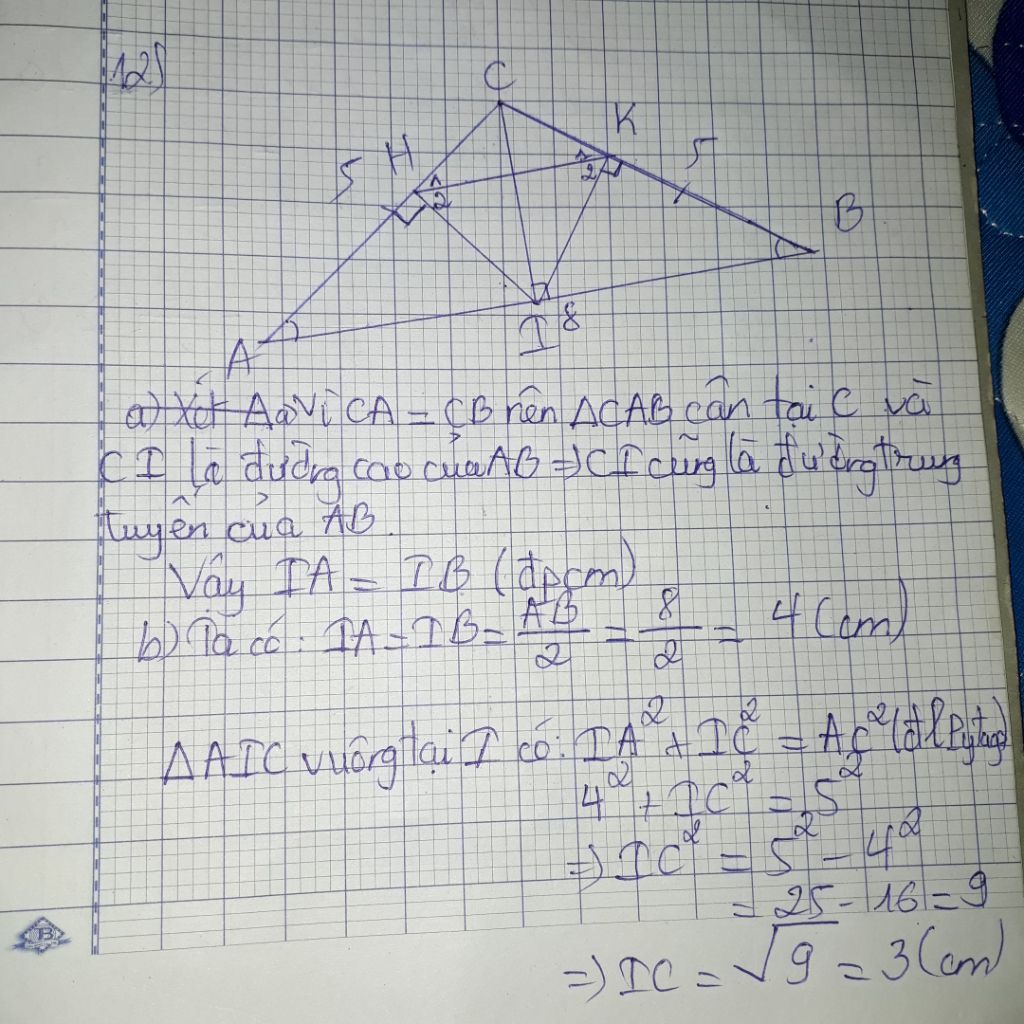 12)
C
K
H
5
5
1
2
1
2
B
A
I
8
a) Xét Aa Vì CA = CB nên ΔCAB cân tại C và
CI là đường cao của AB => CI cũng là đường trung
tuyến của AB.
Vậy IA = IB (đpcm)
b) Ta có: IA = IB = AB/2 = 8/2 = 4 (cm)
ΔAIC vuông tại I có: IA² + IC² = AC² (đl Pytago)
4² + IC² = 5²
=> IC² = 5² - 4²
= 25 - 16 = 9
=> IC = √9 = 3 (cm)
B